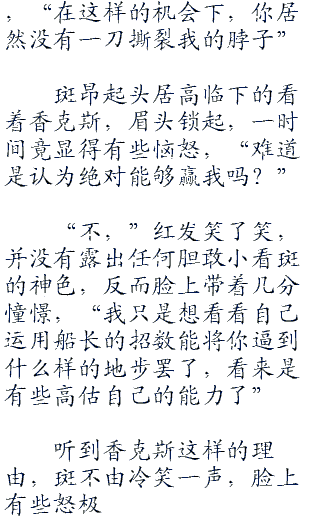 ，“在这样的机会下，你居
然没有一刀撕裂我的脖子”
斑昂起头居高临下的看
着香克斯，眉头锁起，一时
间竟显得有些恼怒，“难道
是认为绝对能够赢我吗？”
“不，”红发笑了笑，
并没有露出任何胆敢小看斑
的神色，反而脸上带着几分
憧憬，“我只是想看看自己
运用船长的招数能将你逼到
什么样的地步罢了，看来是
有些高估自己的能力了”
听到香克斯这样的理
由，斑不由冷笑一声，脸上
有些怒极